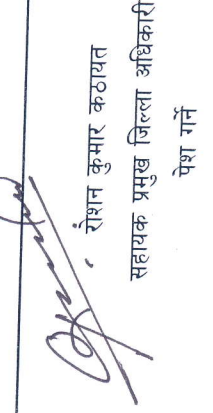 रोशन कुमार कठायत
सहायक प्रमुख जिल्ला अधिकारी
पेश गर्ने